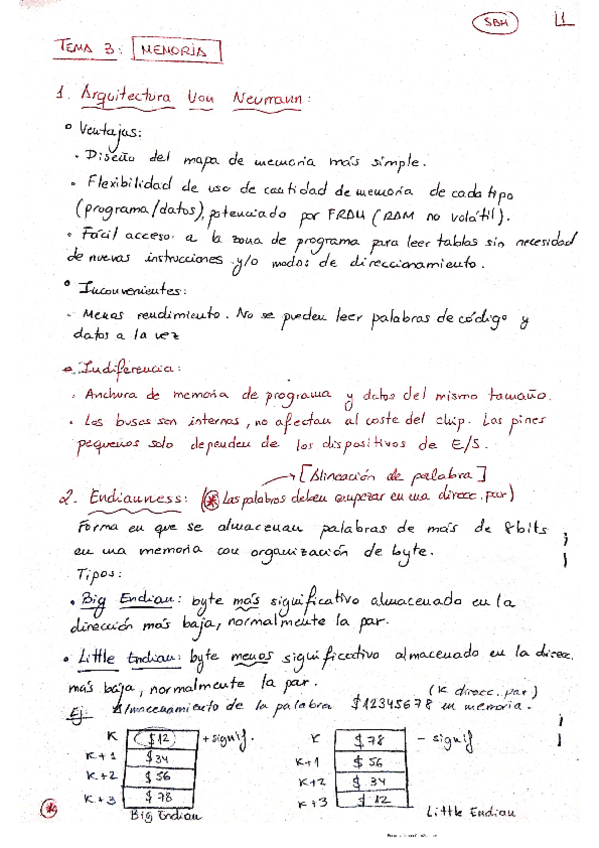 SBM 1
TEMA 3: MEMORIA
1. Arquitectura Von Neumann:
Ventajas:
· Diseño del mapa de memoria más simple.
· Flexibilidad de uso de cantidad de memoria de cada tipo
(programa/datos), potenciado por FRAM (RAM no volátil).
· Fácil acceso a la zona de programa para leer tablas sin necesidad
de nuevas instrucciones y/o modos de direccionamiento.
Inconvenientes:
· Menos rendimiento. No se pueden leer palabras de código y
datos a la vez
Indiferencia:
· Anchura de memoria de programa y datos del mismo tamaño.
· Los buses son internos, no afectan al coste del chip. Los pines
pequeños solo dependen de los dispositivos de E/S.
→ [Alineación de palabra]
2. Endianness: (* Las palabras deben empezar en una direcc. par)
Forma en que se almacenan palabras de más de 8bits
en una memoria con organización de byte.
Tipos:
· Big Endian: byte más significativo almacenado en la
dirección más baja, normalmente la par.
· Little Endian: byte menos significativo almacenado en la direcc.
más baja, normalmente la par.
(K direcc. par)
Ej: Almacenamiento de la palabra $12345678 en memoria.
K $12 + signif. K $78 - signif
K+1 $34 K+1 $56
K+2 $56 K+2 $34
K+3 $78 K+3 $12
Big Endian Little Endian